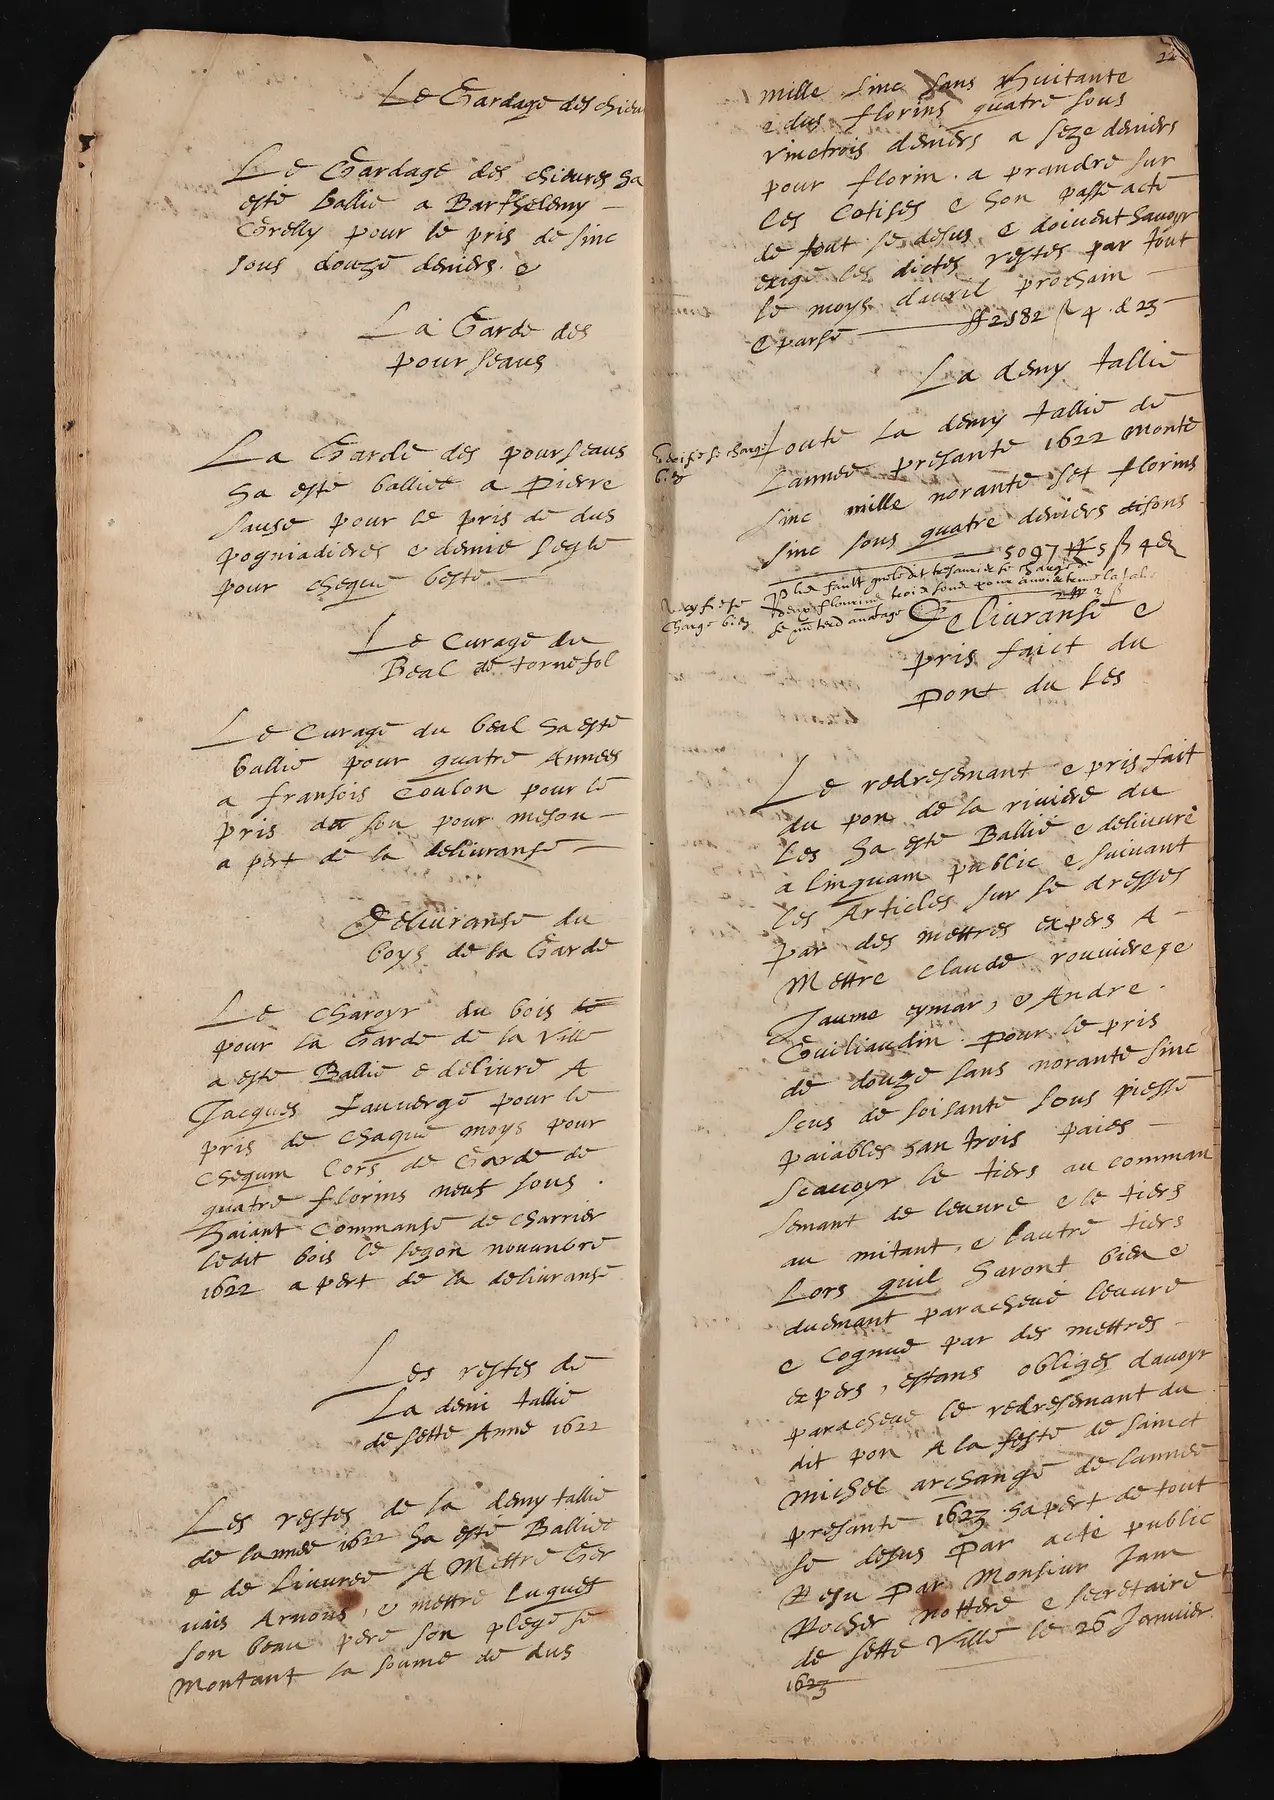 Le Gardage des chieu
Le Gardage des chieures ha
esté ballié a Barthelemy
Grelly pour le pris de sinc
sous douze deniers. e
La Garde des
pourseaus
La Garde des pourseaus
ha esté balliee a Pierre
sause pour le pris de dus
pogniadieres e demie segle
pour cheque beste
Le Curage du
Beal de tornesol
Le Curage du beal ha esté
ballié pour quatre Annees
a fransois Coulon pour le
pris du sou pour meson
a pert de la deliuranse
Deliuranse du
boys de la Garde
Le charoyr du bois de
pour la Garde de la Ville
a esté Ballié e deliuré A
Jacques fauuerge pour le
pris de chaque moys pour
chequn Cors de Garde de
quatre florins neuf sous.
haiant Commansé de charrier
ledit bois le segon nouanbre
1622 a pert de la deliuranse
Les restes de
La demi tallie
de sette Anne 1622
Les restes de la demy tallie
de lannee 1622 ha esté Balliee
e de Liuree A Mettre Ger
uais Arnous, e mettre Luques
son beau pere son plege se
Montant la soume de dus
22
mille sinc sans huitante
e dus florins quatre sous
vinetrois deniers a seze deniers
pour florin. a prandre sur
les Cotises e hon passe acte
de tout se desus e doiuent hauoyr
exige les dictes restes par tout
le moys dauril prochain
e parse ff 2582 ß 4 . d 23
La demy tallie
toute la demy tallie de
Lannee presante 1622 monte
sinc mille norante set florins
sinc sous quatre deniers disons
5097 ff 5 ß 4 d
charge
bien
Plus fault que ledit tresaurie se charge de
deux flourins trois sous pour
de auantage
2 ff 3 ß
charge bien
Deliuranse e
pris faict du
Pont du Les
Le redresemant e pris fait
du pon de la riuiere du
Les ha esté Ballié e deliuuré
a linquam public e suiuant
les Articles sur se dresses
par des mettres expers A
Mettre Claude rouuiere e
Jaume eymar, e Andre.
Guiliaudin. pour le pris
de douze sans norante sinc
scus de soisante sous piesse
paiables han trois paies
scauoyr le tiers au comman
semant de leuure e le tiers
au mitant, e lautre tiers
Lors quil haront bien e
duemant paracheué leuure
e Cognue par des mettres
expers, estans obliges dauoyr
paracheue le redresemant du
dit pon A la feste de sainct
Michel archange de lannee
presante 1623 . ha pert de tout
se desus Par acte public
Resu Par Monsiur Jam
Rocher nottere e secretaire
de sette Ville le 26 Januier
1623